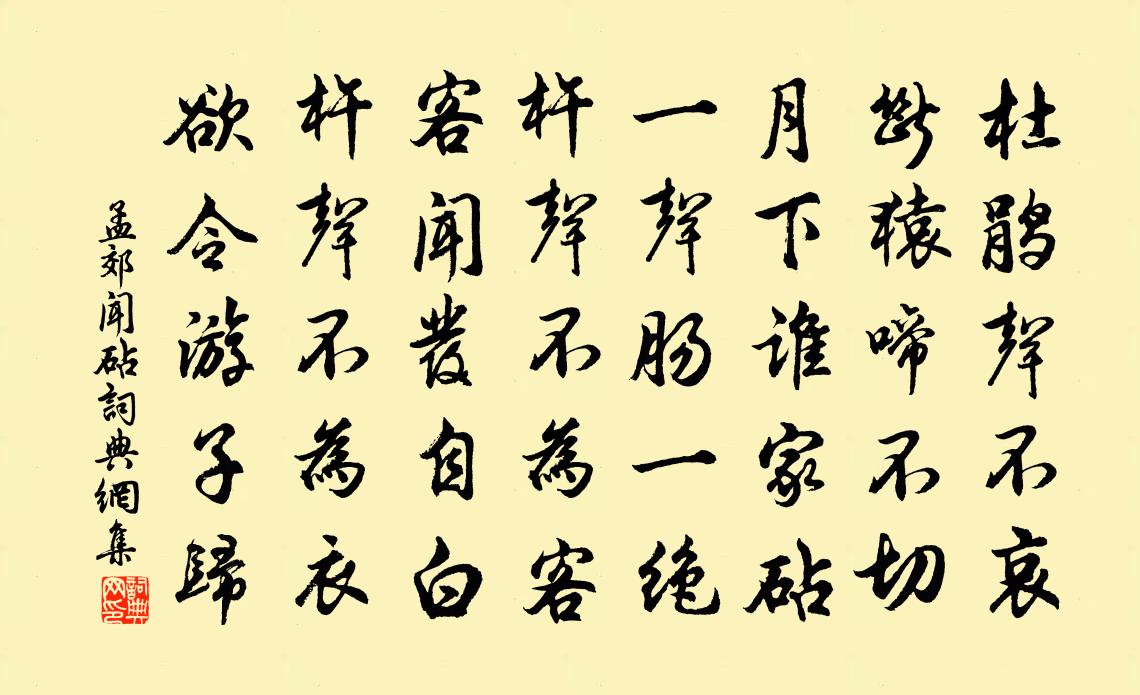 杜鵑聲不哀
斷猿啼不切
月下誰家砧
一聲腸一絕
杵聲不為客
客聞髮自白
杵聲不為衣
欲令游子歸
孟郊聞砧詞典網集
詞典网印